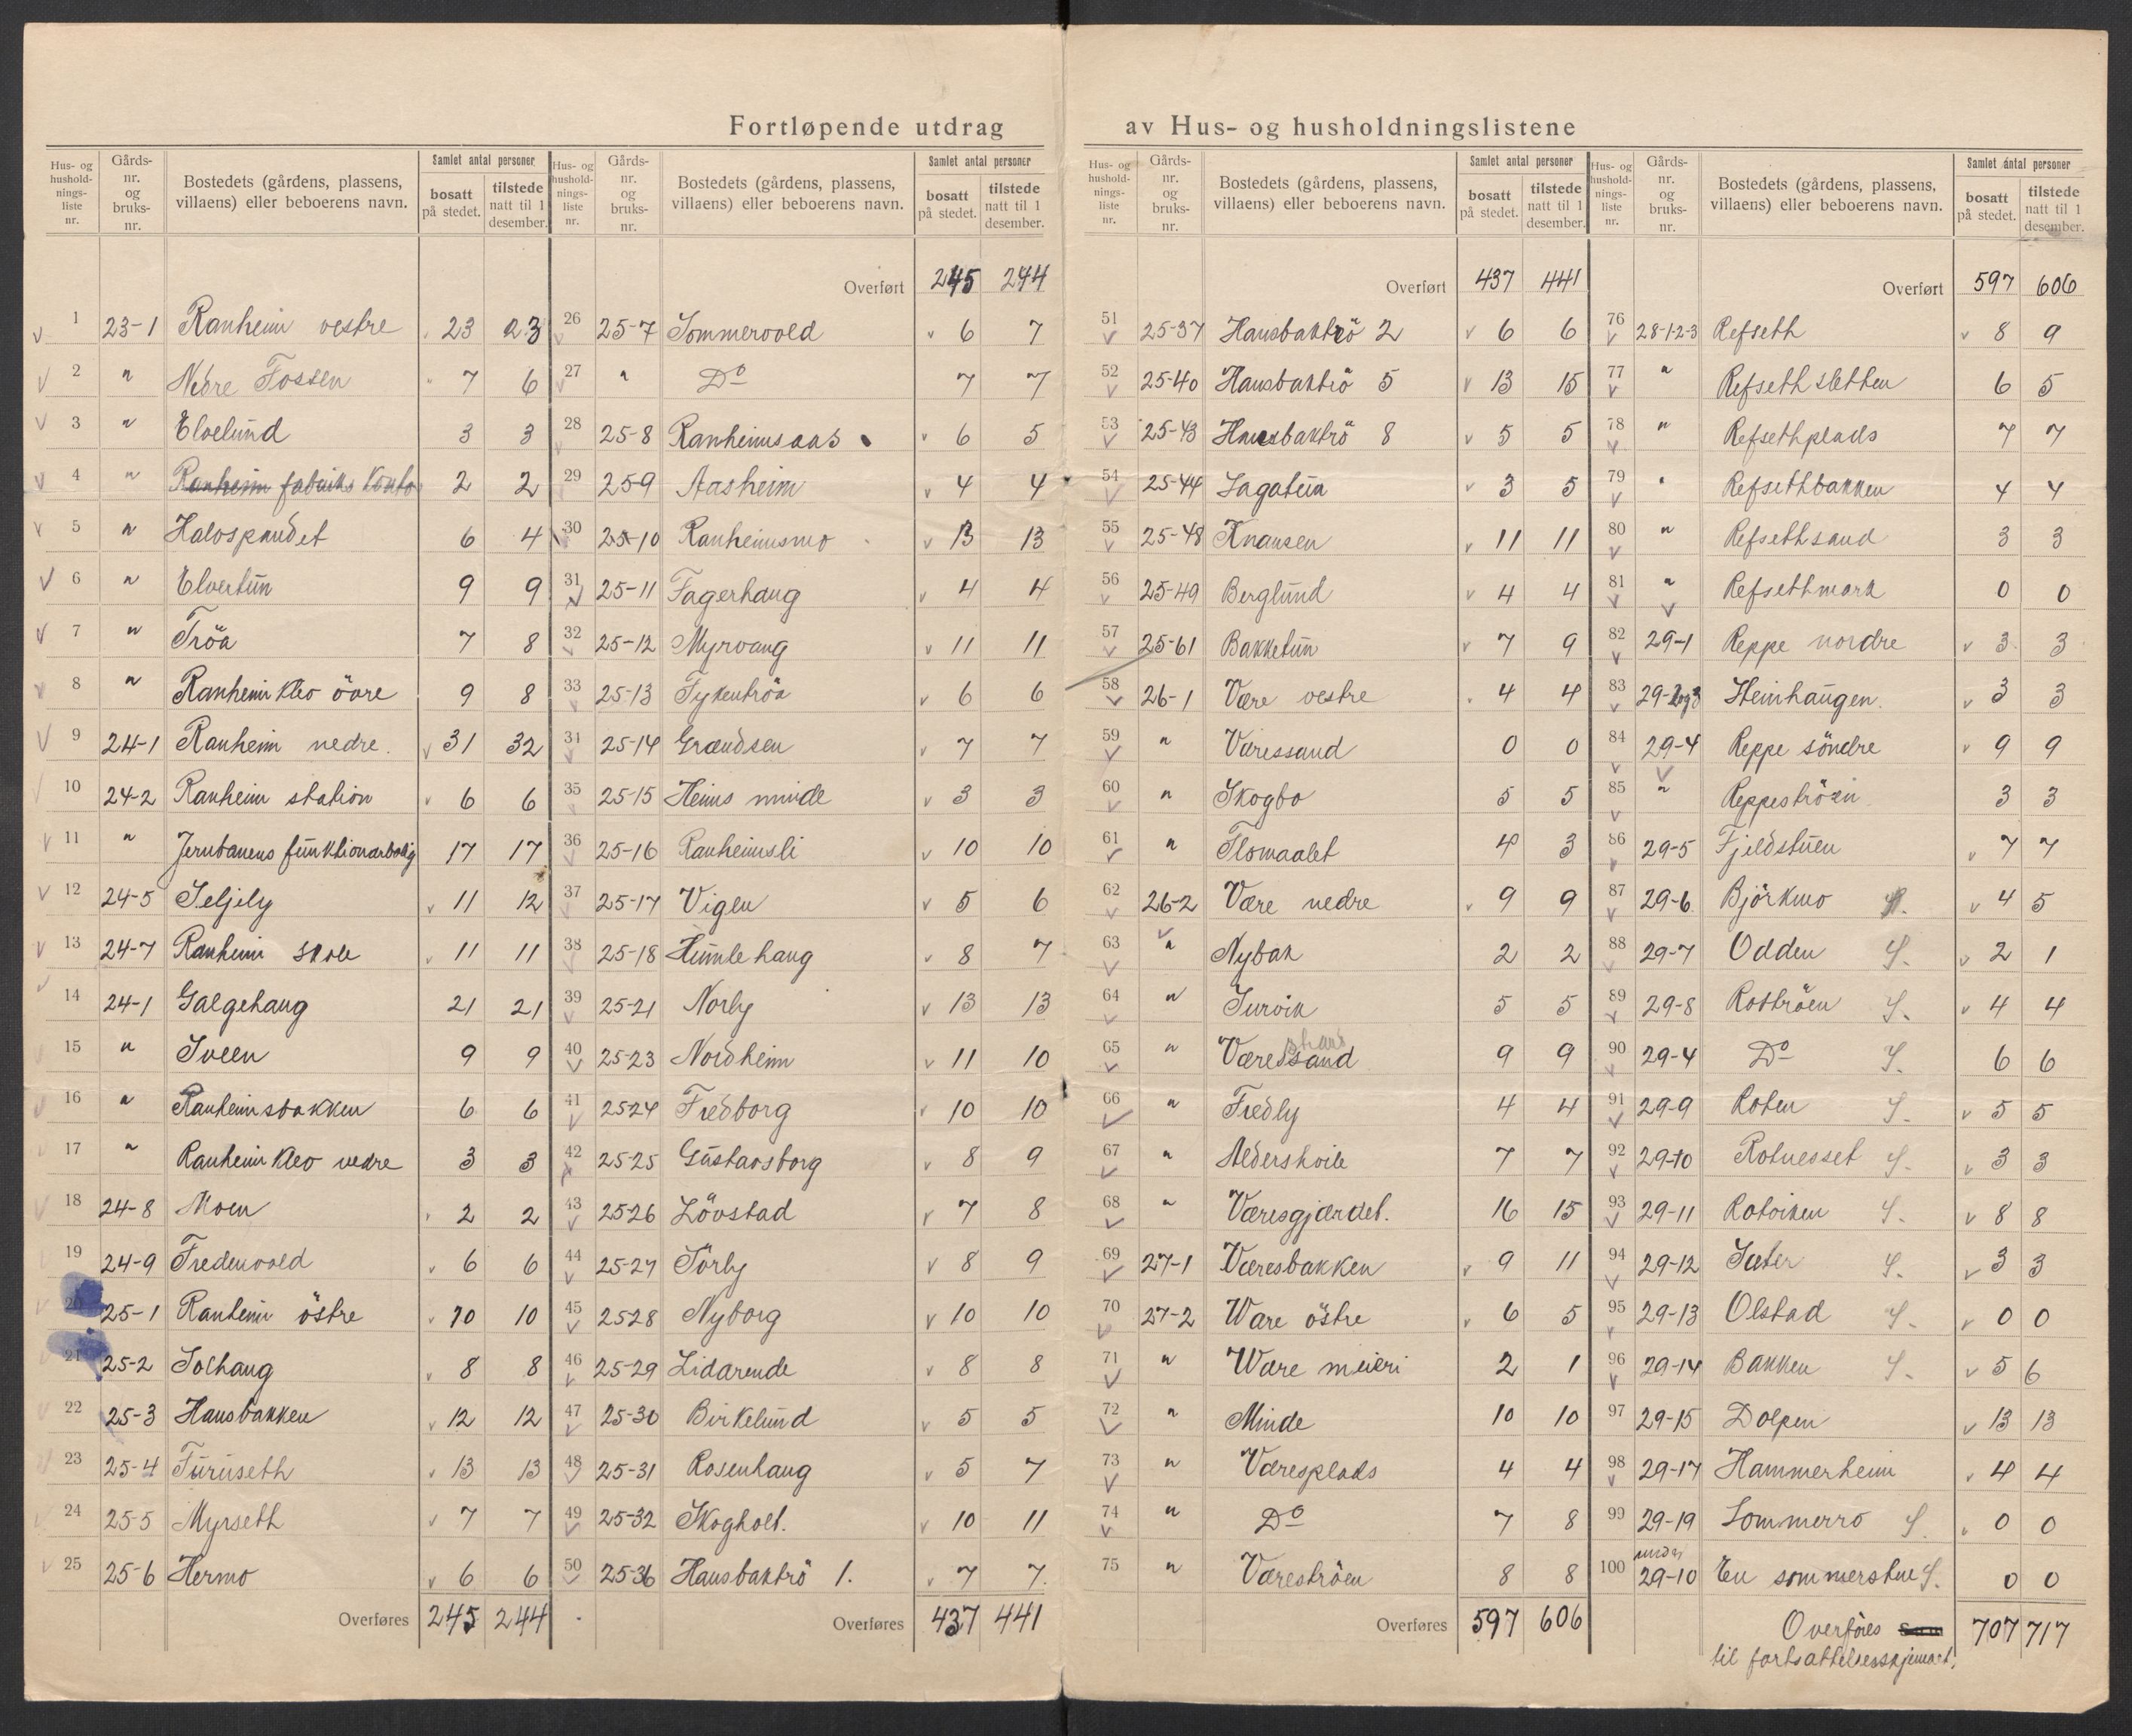 Fortløpende utdrag av Hus- og husholdningslistene
Hus- og husholdnings-liste nr. | Gårds-nr. og bruks-nr. | Bostedets (gårdens, plassens, villaens) eller beboerens navn. | Samlet antal personer bosatt på stedet. | tilstede natt til 1 desember.
1 23-1 Ranheim vestre 23 23
2 " Nedre Fossen 7 6
3 " Elvelund 3 3
4 " Ranheim fabriks Konto 2 2
5 " 6 4
6 " Elvertun 9 9
7 " Tröa 7 8
8 " Ranheim Kleo övre 9 8
9 24-1 Ranheim nedre. 31 32
10 24-2 Ranheim station 6 6
11 " Jernbanens funktionærbolig 17 17
12 24-5 Seljely 11 12
13 24-7 Ranheim skole 11 11
14 24-1 Galgehaug 21 21
15 " Sveen 9 9
16 " Ranheimsbakken 6 6
17 " Ranheim Kleo nedre 3 3
18 24-8 Moen 2 2
19 24-9 Fredenvold 6 6
20 25-1 Ranheim östre 10 10
21 25-2 Solhaug 8 8
22 25-3 Hansbakken 12 12
23 25-4 Furuseth 13 13
24 25-5 Myrseth 7 7
25 25-6 Hermo 6 6
Overføres 245 244
Hus- og husholdnings-liste nr. | Gårds-nr. og bruks-nr. | Bostedets (gårdens, plassens, villaens) eller beboerens navn. | Samlet antal personer bosatt på stedet. | tilstede natt til 1 desember.
Overført 245 244
26 25-7 Sommervold 6 7
27 " Do 7 7
28 25-8 Ranheimsaas 6 5
29 25-9 Aasheim 4 4
30 25-10 Ranheimsmo 13 13
31 25-11 Fagerhaug 4 4
32 25-12 Myrvang 11 11
33 25-13 Tykentröa 6 6
31 25-14 Grændsen 7 7
35 25-15 Heims minde 3 3
36 25-16 Ranheimsli 10 10
37 25-17 Vigen 5 6
38 25-18 Humlehaug 8 7
39 25-21 Norby 13 13
40 25-23 Nordheim 11 10
41 25-24 Fredborg 10 10
42 25-25 Gustavsborg 8 9
43 25-26 Lövstad 7 8
44 25-27 Sörby 8 9
45 25-28 Nyborg 10 10
46 25-29 Lidarende 8 8
47 25-30 Birkelund 5 5
48 25-31 Rosenhaug 5 7
49 25-32 Skogholt. 10 11
50 25-36 Hansbaktrö 1. 7 7.
Overføres 437 441
Hus- og husholdnings-liste nr. | Gårds-nr. og bruks-nr. | Bostedets (gårdens, plassens, villaens) eller beboerens navn. | Samlet antal personer bosatt på stedet. | tilstede natt til 1 desember.
Overført 437 441
51 25-37 Hansbaktrö 2 6 6
52 25-40 Hansbaktrö 5 13 15
53 25-43 Hansbaktrö 8 5 5
54 25-44 Lagatun 3 5
55 25-48 Knausen 11 11
56 25-49 Berglund 4 4
57 25-61 Bakketun 7 9
58 26-1 Være vestre 4 4
59 " Væressand 0 0
60 " Skogbo 5 5
61 " Flomaalet 4 3
62 26-2 Være nedre 9 9
63 " Nybak 2 2
64 " Survik 5 5
65 " Væressand strand 9 9
66 " Fredly 4 4
67 " Aldershvile 7 7
68 " Væresgjærdet. 16 15
69 27-1 Væresbakken 9 11
70 27-2 Være östre 6 5
71 " Være meieri 2 1
72 " Minde 10 10
73 " Væresplads 4 4
74 " Do 7 8
75 " Væreströen 8 8
Overføres 597 606
Hus- og husholdnings-liste nr. | Gårds-nr. og bruks-nr. | Bostedets (gårdens, plassens, villaens) eller beboerens navn. | Samlet antal personer bosatt på stedet. | tilstede natt til 1 desember.
Overført 597 606
76 28-1-2-3 Refseth 8 9
77 " Refsethsletten 6 5
78 " Refsethplads 7 7
79 " Refsethbakken 4 4
80 " Refsethsand 3 3
81 " Refsethmark 0 0
82 29-1 Reppe nordre 3 3
83 29-2og3 Steinhaugen. 3 3
84 29-4 Reppe söndre 9 9
85 " Reppeströen 3 3
86 29-5 Fjeldstuen 7 7
87 29-6 Björkmo 4 5
88 29-7 Odden S. 2 1
89 29-8 Roströen S. 4 4
90 29-4 Do S. 6 6
91 29-9 Roten S. 5 5
92 29-10 Rotnesset S. 3 3
93 29-11 Rotviken S. 8 8
94 29-12 Sæter S. 3 3
95 29-13 Olstad S. 0 0
96 29-14 Bakken S. 5 6
97 29-15 Dolpen 13 13
98 29-17 Hammerheim 4 4
99 29-19 Sommerro S. 0 0
100 under 29-10 En sommerstue S. 0 0
Overföres Sum 707 717
til fortsættelsesskjemaet.